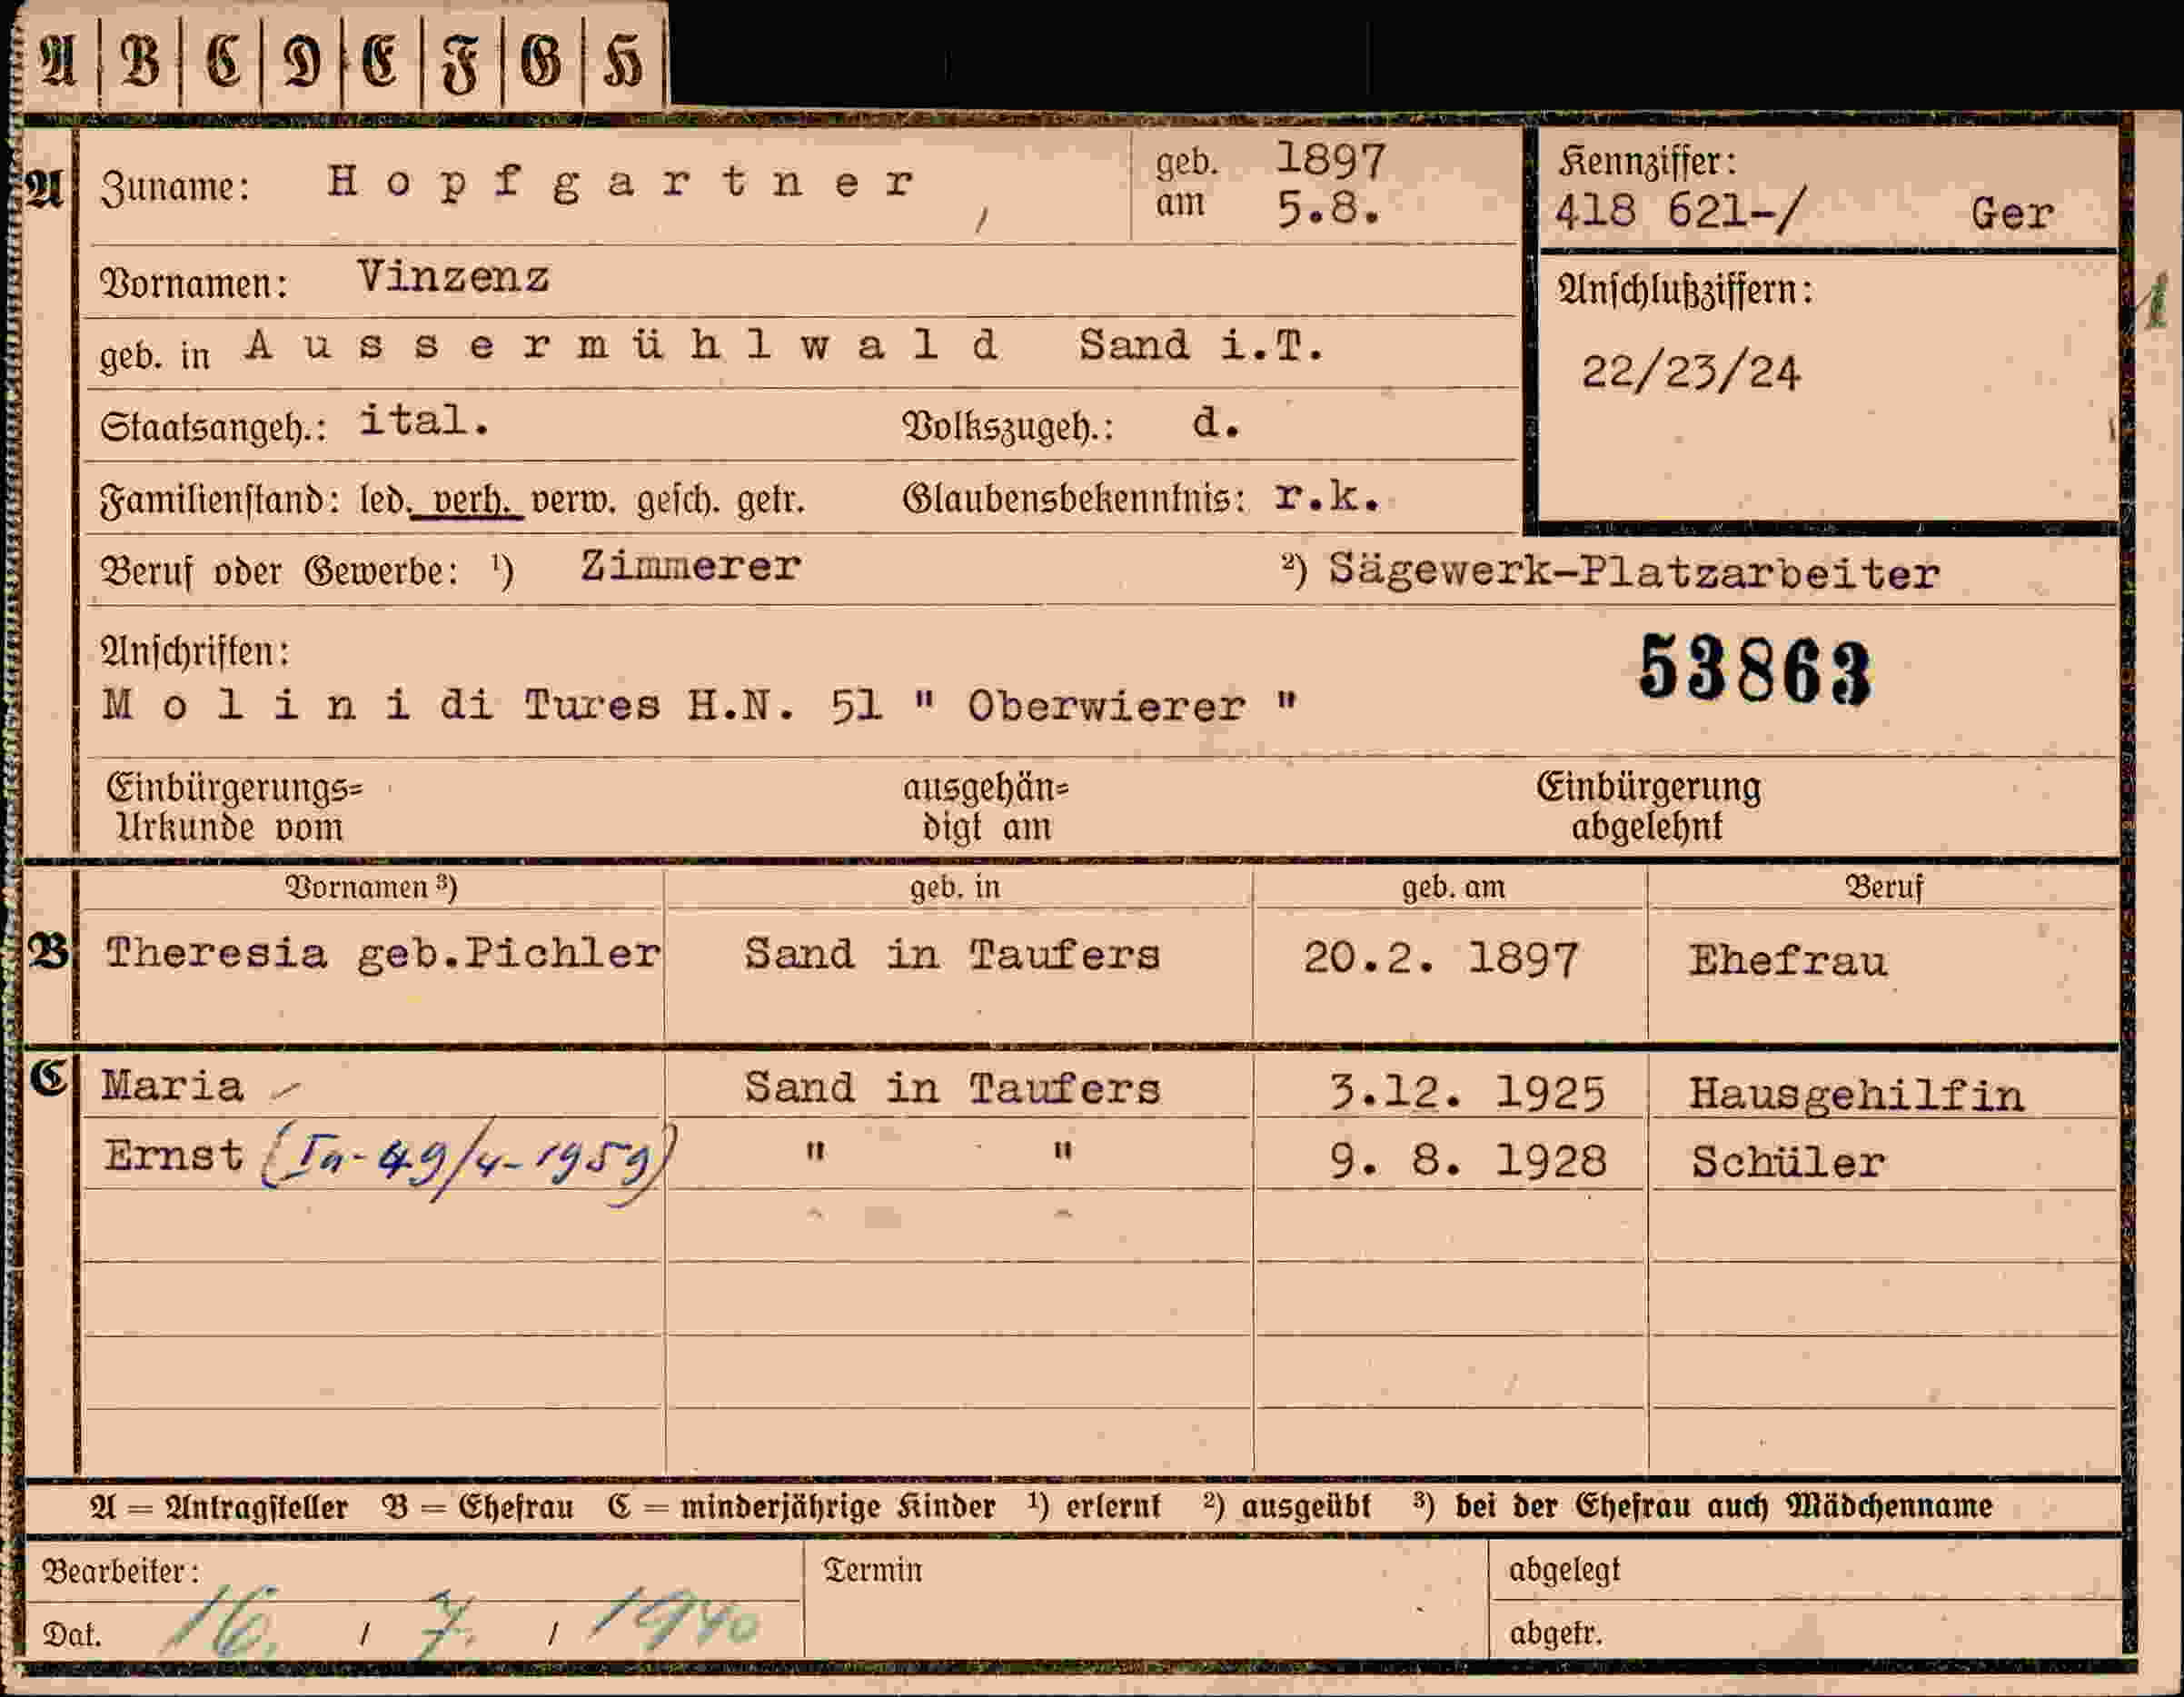 A | B | C | D | E | F | G | H
A Zuname: Hopfgartner, geb. am 1897 5.8.
Kennziffer:
418 621-/ Ger
Vornamen: Vinzenz
Anschlußziffern:
geb. in Aussermühlwald Sand i.T.
22/23/24
Staatsangeh.: ital. Volkszugeh.: d.
Familienstand: led. verh. verw. gesch. getr. Glaubensbekenntnis: r.k.
Beruf oder Gewerbe: ¹) Zimmerer ²) Sägewerk-Platzarbeiter
Anschriften:
53863
Molini di Tures H.N. 51 " Oberwierer "
Einbürgerungs= ausgehän= Einbürgerung
Urkunde vom digt am abgelehnt
Vornamen ³) geb. in geb. am Beruf
B Theresia geb.Pichler Sand in Taufers 20.2. 1897 Ehefrau
C Maria Sand in Taufers 3.12. 1925 Hausgehilfin
Ernst (Ia-49/4-1959) " " 9. 8. 1928 Schüler
A = Antragsteller B = Ehefrau C = minderjährige Kinder ¹) erlernt ²) ausgeübt ³) bei der Ehefrau auch Mädchenname
Bearbeiter: Termin abgelegt
Dat. 16. / 7. / 1940 abgetr.